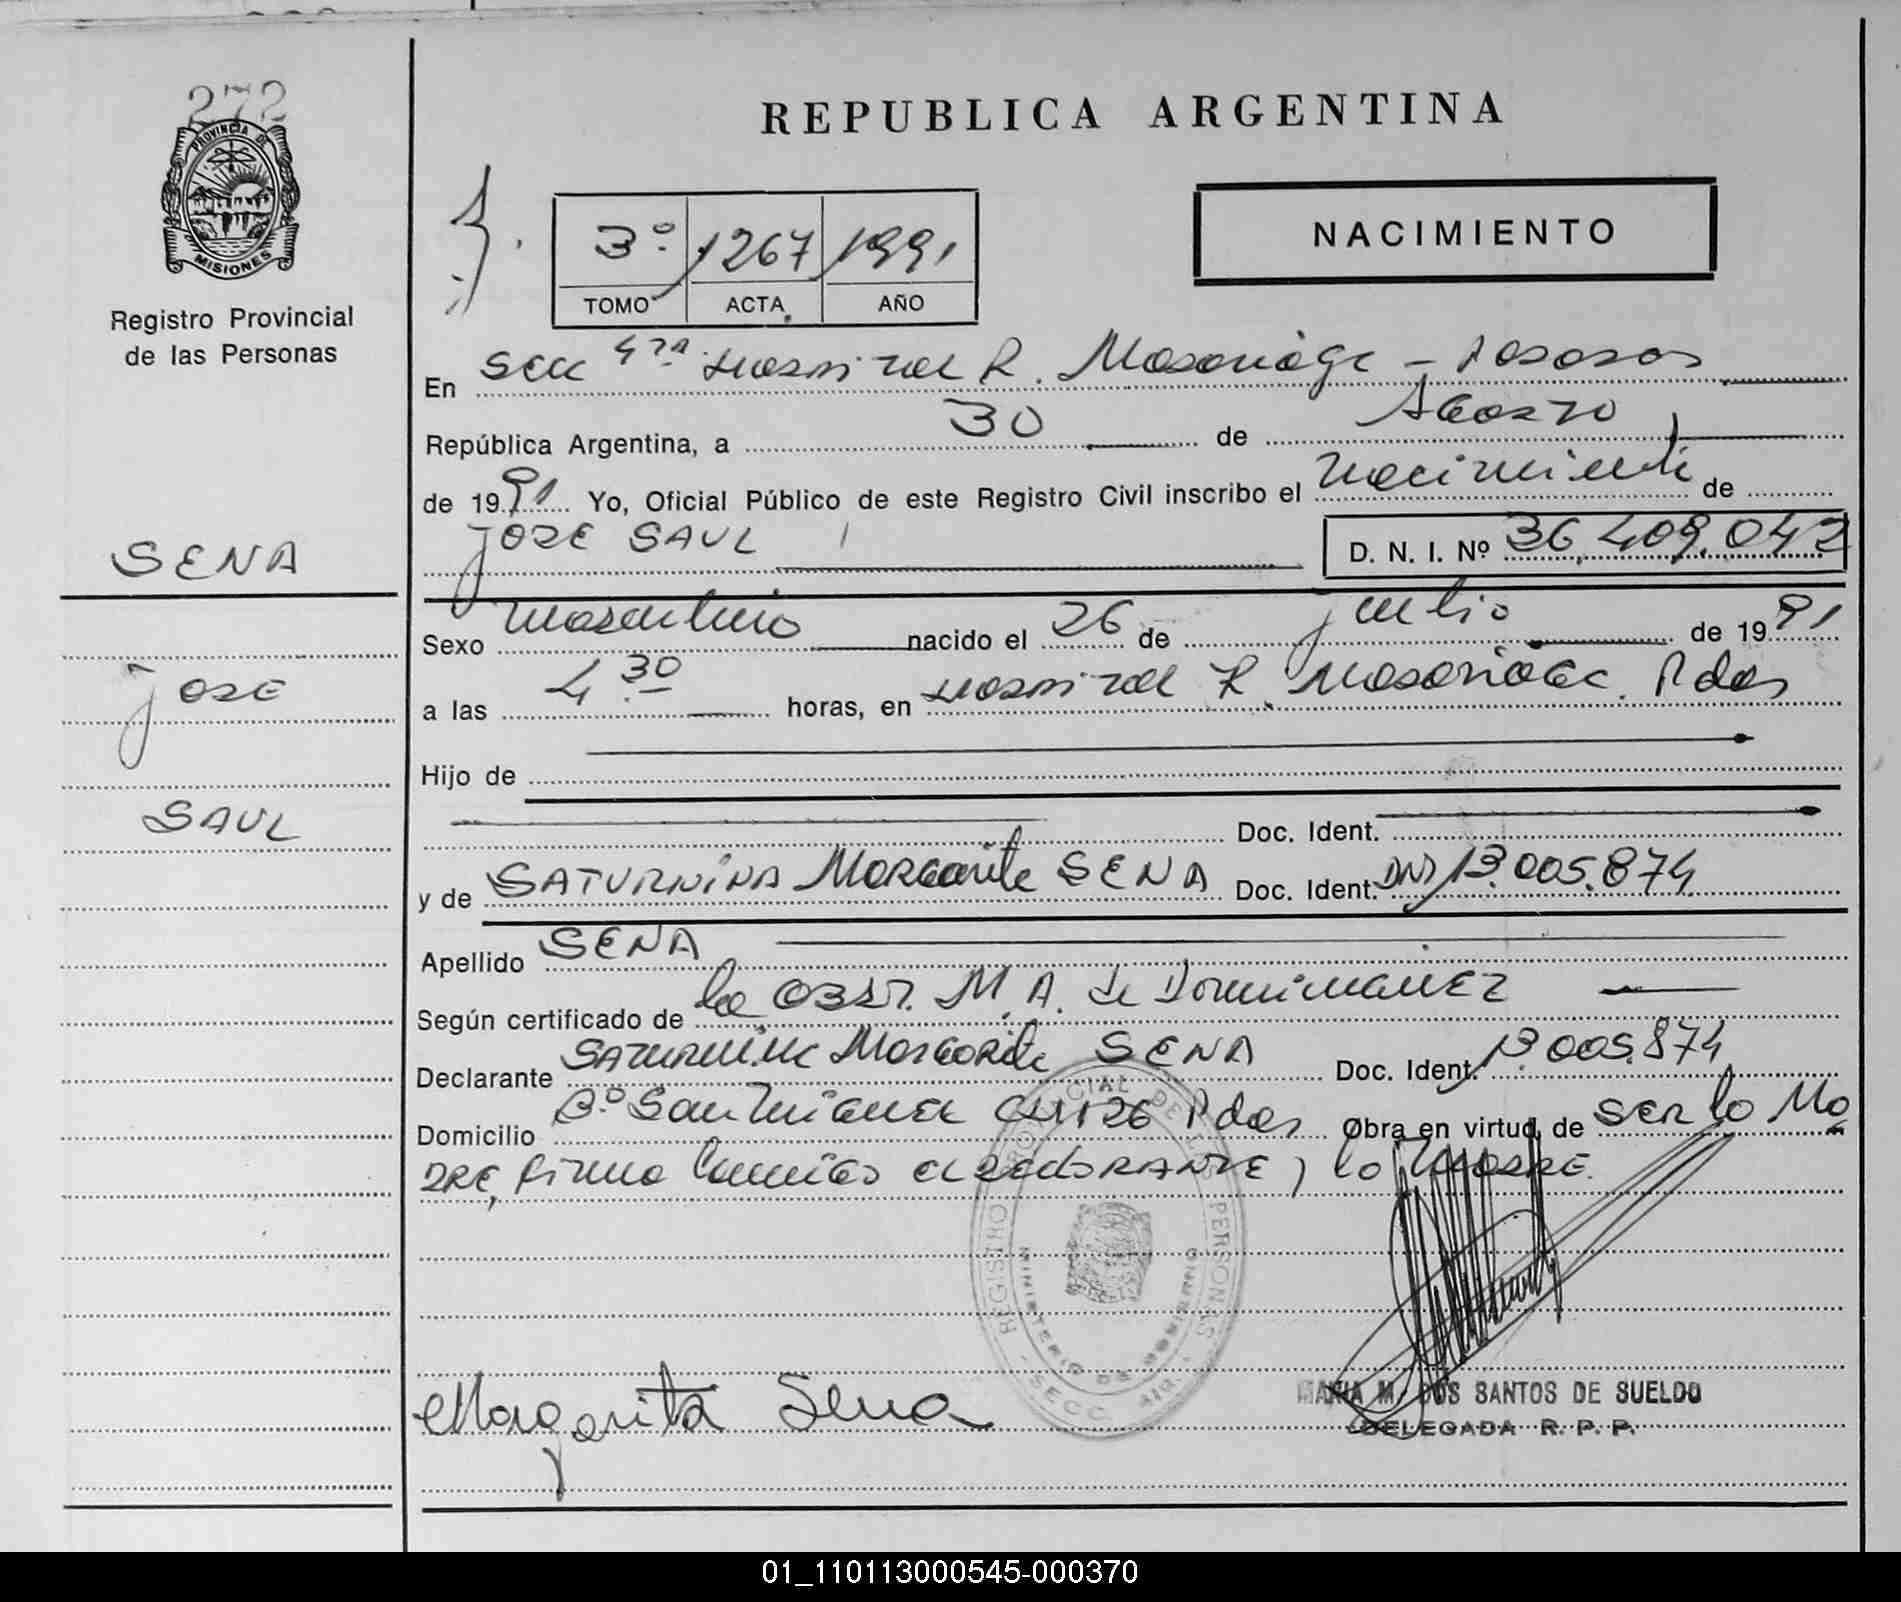 272
PROVINCIA DE
MISIONES
Registro Provincial
de las Personas
SENA
JOSE
SAUL
REPUBLICA ARGENTINA
NACIMIENTO
3º 1267 1991
TOMO ACTA AÑO
En Secc 4ta Hospital R. Madariaga - Posadas
República Argentina, a 30 de Agosto
de 1991 Yo, Oficial Público de este Registro Civil inscribo el nacimiento de
JOSE SAUL D. N. I. Nº 36.409.042
Sexo masculino nacido el 26 de julio de 1991
a las 4 30 horas, en Hospital R. Madariaga. Pdas
Hijo de
Doc. Ident.
y de SATURNINA Margarita SENA Doc. Ident. DNI 13.005.874
Apellido SENA
Según certificado de la Obst. M. A. de Dominguez
Declarante Saturnina Margarita SENA Doc. Ident. 13.005.874
Domicilio Bº San Miguel CH 126 Pdas Obra en virtud de ser la Ma
dre, firma el declarante, la madre.
REGISTRO PROVINCIAL DE LAS PERSONAS
MINISTERIO DE GOBIERNO
SECC.
Margarita Sena
MARIA M. DOS SANTOS DE SUELDO
DELEGADA R. P. P.
01_110113000545-000370